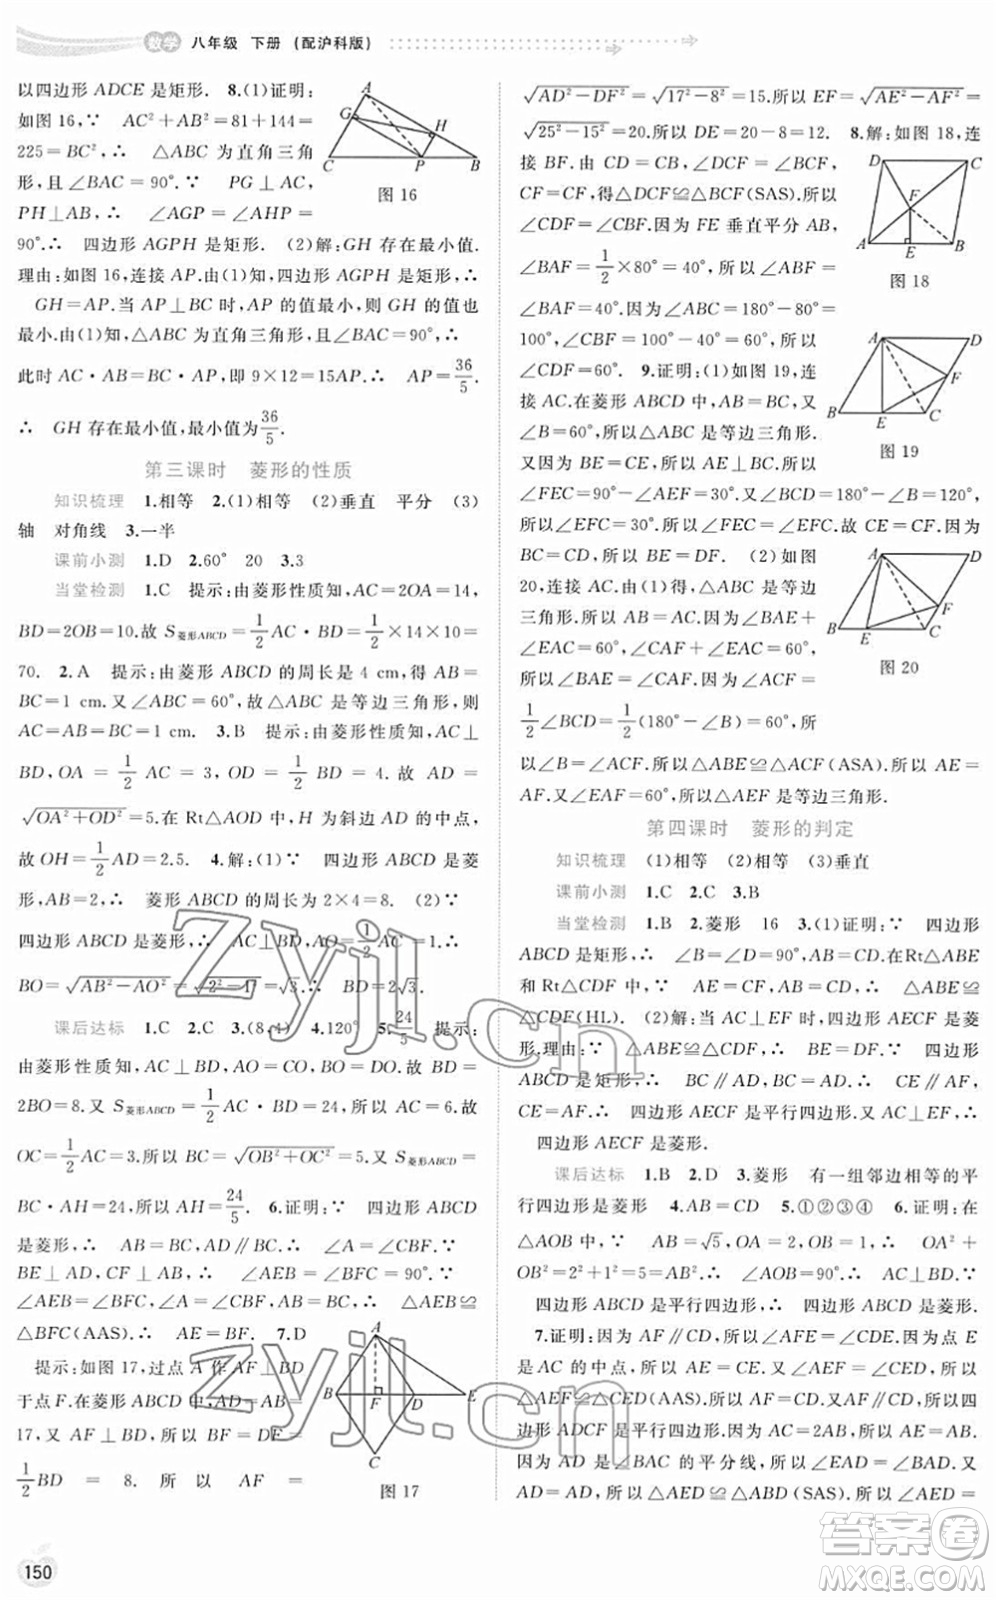 数学 八年级 下册 (配沪科版)
以四边形 ADCE 是矩形. 8.(1)证明:
如图 16,∵ AC²+AB²=81+144=
225=BC²,∴ △ABC 为直角三角
形,且∠BAC=90°.∵ PG⊥AC,
PH⊥AB,∴ ∠AGP=∠AHP=
A
G
H
C
P
B
图 16
90°.∴ 四边形 AGPH 是矩形. (2)解:GH 存在最小值.
理由:如图 16,连接 AP.由(1)知,四边形 AGPH 是矩形,∴
GH=AP.当 AP⊥BC 时,AP 的值最小,则 GH 的值也
最小.由(1)知,△ABC 为直角三角形,且∠BAC=90°,∴
此时 AC·AB=BC·AP,即 9×12=15AP.∴ AP=36/5.
∴ GH 存在最小值,最小值为36/5.
第三课时 菱形的性质
知识梳理 1.相等 2.(1)相等 (2)垂直 平分 (3)
轴 对角线 3.一半
课前小测 1.D 2.60° 20 3.3
当堂检测 1.C 提示:由菱形性质知,AC=2OA=14,
BD=2OB=10.故 S菱形ABCD=1/2AC·BD=1/2×14×10=
70. 2.A 提示:由菱形 ABCD 的周长是 4 cm,得 AB=
BC=1 cm.又∠ABC=60°,故△ABC 是等边三角形,则
AC=AB=BC=1 cm. 3.B 提示:由菱形性质知,AC⊥
BD,OA=1/2AC=3,OD=1/2BD=4.故 AD=
√(OA²+OD²)=5.在 Rt△AOD 中,H 为斜边 AD 的中点,
故 OH=1/2AD=2.5. 4.解:(1)∵ 四边形 ABCD 是菱
形,AB=2,∴ 菱形 ABCD 的周长为 2×4=8. (2)∵
四边形 ABCD 是菱形,∴ AC⊥BD,AO=1/2AC=1.∴
BO=√(AB²-AO²)=√(2²-1²)=√3.∴ BD=2√3.
课后达标 1.C 2.C 3.(8,4) 4.120° 5.24/5 提示:
由菱形性质知,AC⊥BD,AO=CO,BO=DO.故 BD=
2BO=8.又 S菱形ABCD=1/2AC·BD=24,所以 AC=6.故
OC=1/2AC=3.所以 BC=√(OB²+OC²)=5.又 S菱形ABCD=
BC·AH=24,所以 AH=24/5. 6.证明:∵ 四边形 ABCD
是菱形,∴ AB=BC,AD∥BC.∴ ∠A=∠CBF.∵
BE⊥AD,CF⊥AB,∴ ∠AEB=∠BFC=90°.∵
∠AEB=∠BFC,∠A=∠CBF,AB=BC,∴ △AEB≌
△BFC(AAS).∴ AE=BF. 7.D
提示:如图 17,过点 A 作 AF⊥BD
于点 F.由菱形性质知,AB=AD=
17,又 AF⊥BD,所以 BF=DF=
1/2BD=8.所以 AF=
A
B
F
D
E
C
图 17
√(AD²-DF²)=√(17²-8²)=15.所以 EF=√(AE²-AF²)=
√(25²-15²)=20.所以 DE=20-8=12. 8.解:如图 18,连
接 BF.由 CD=CB,∠DCF=∠BCF,
CF=CF,得△DCF≌△BCF(SAS).所以
∠CDF=∠CBF.因为 FE 垂直平分 AB,
∠BAF=1/2×80°=40°,所以∠ABF=
∠BAF=40°.因为∠ABC=180°-80°=
100°,∠CBF=100°-40°=60°.所以
∠CDF=60°. 9.证明:(1)如图 19,连接
AC.在菱形 ABCD 中,AB=BC,∠B=
60°,所以△ABC 是等边三角形.所以 AE⊥BC.
又因为 BE=CE,所以 AE⊥BC.所以
∠FEC=90°-∠AEF=30°.又∠BCD=180°-∠B=120°,
所以∠EFC=30°.所以∠FEC=∠EFC.故 CE=CF.因为
BC=CD,所以 BE=DF. (2)如图
20,连接 AC.由(1)得,△ABC 是等边
三角形.所以 AB=AC.因为∠BAE+
∠EAC=60°,∠EAC+∠CAF=60°,
所以∠BAE=∠CAF.因为∠ACF=
1/2∠BCD=1/2(180°-∠B)=60°,所
以∠B=∠ACF.所以△ABE≌△ACF(ASA).所以 AE=
AF.又∠EAF=60°,所以△AEF 是等边三角形.
D
C
F
A
E
B
图 18
A
D
F
B
E
C
图 19
A
D
F
B
E
C
图 20
第四课时 菱形的判定
知识梳理 (1)相等 (2)相等 (3)垂直
课前小测 1.C 2.C 3.B
当堂检测 1.B 2.菱形 16 3.(1)证明:∵ 四边形
ABCD 是矩形,∴ ∠B=∠D=90°,AB=CD.在Rt△ABE
和 Rt△CDF 中,∵ AE=CF,AB=CD,∴ △ABE≌
△CDF(HL). (2)解:当 AC⊥EF 时,四边形 AECF 是菱
形.理由:∵ △ABE≌△CDF,∴ BE=DF.∵ 四边形
ABCD 是矩形,∴ BC∥AD,BC=AD.∴ CE∥AF,
CE=AF.∴ 四边形 AECF 是平行四边形.又 AC⊥EF,∴
四边形 AECF 是菱形.
课后达标 1.B 2.D 3.菱形 有一组邻边相等的平
行四边形是菱形 4.AB=CD 5.①②③④ 6.证明:在
△AOB 中,∵ AB=√5,AO=2,BO=1,∴ OA²+
OB²=2²+1²=5=AB².∴ ∠AOB=90°.∴ AC⊥BD.∵
四边形 ABCD 是平行四边形,∴ 四边形 ABCD 是菱形.
7.证明:因为 AF∥CD,所以∠AFE=∠CDE.因为点 E
是 AC 的中点,所以 AE=CE.又∠AEF=∠CED,所以
△AEF≌△CED(AAS).所以 AF=CD.又AF∥CD,所以四
边形 ADCF 是平行四边形.由题意知,AC=2AB,所以 AE=
AB.因为 AD 是∠BAC 的平分线,所以∠EAD=∠BAD.又
AD=AD,所以△AED≌△ABD(SAS).所以∠AED=
150
zyjl.cn
zyjl.cn
答案卷
MXQE.COM